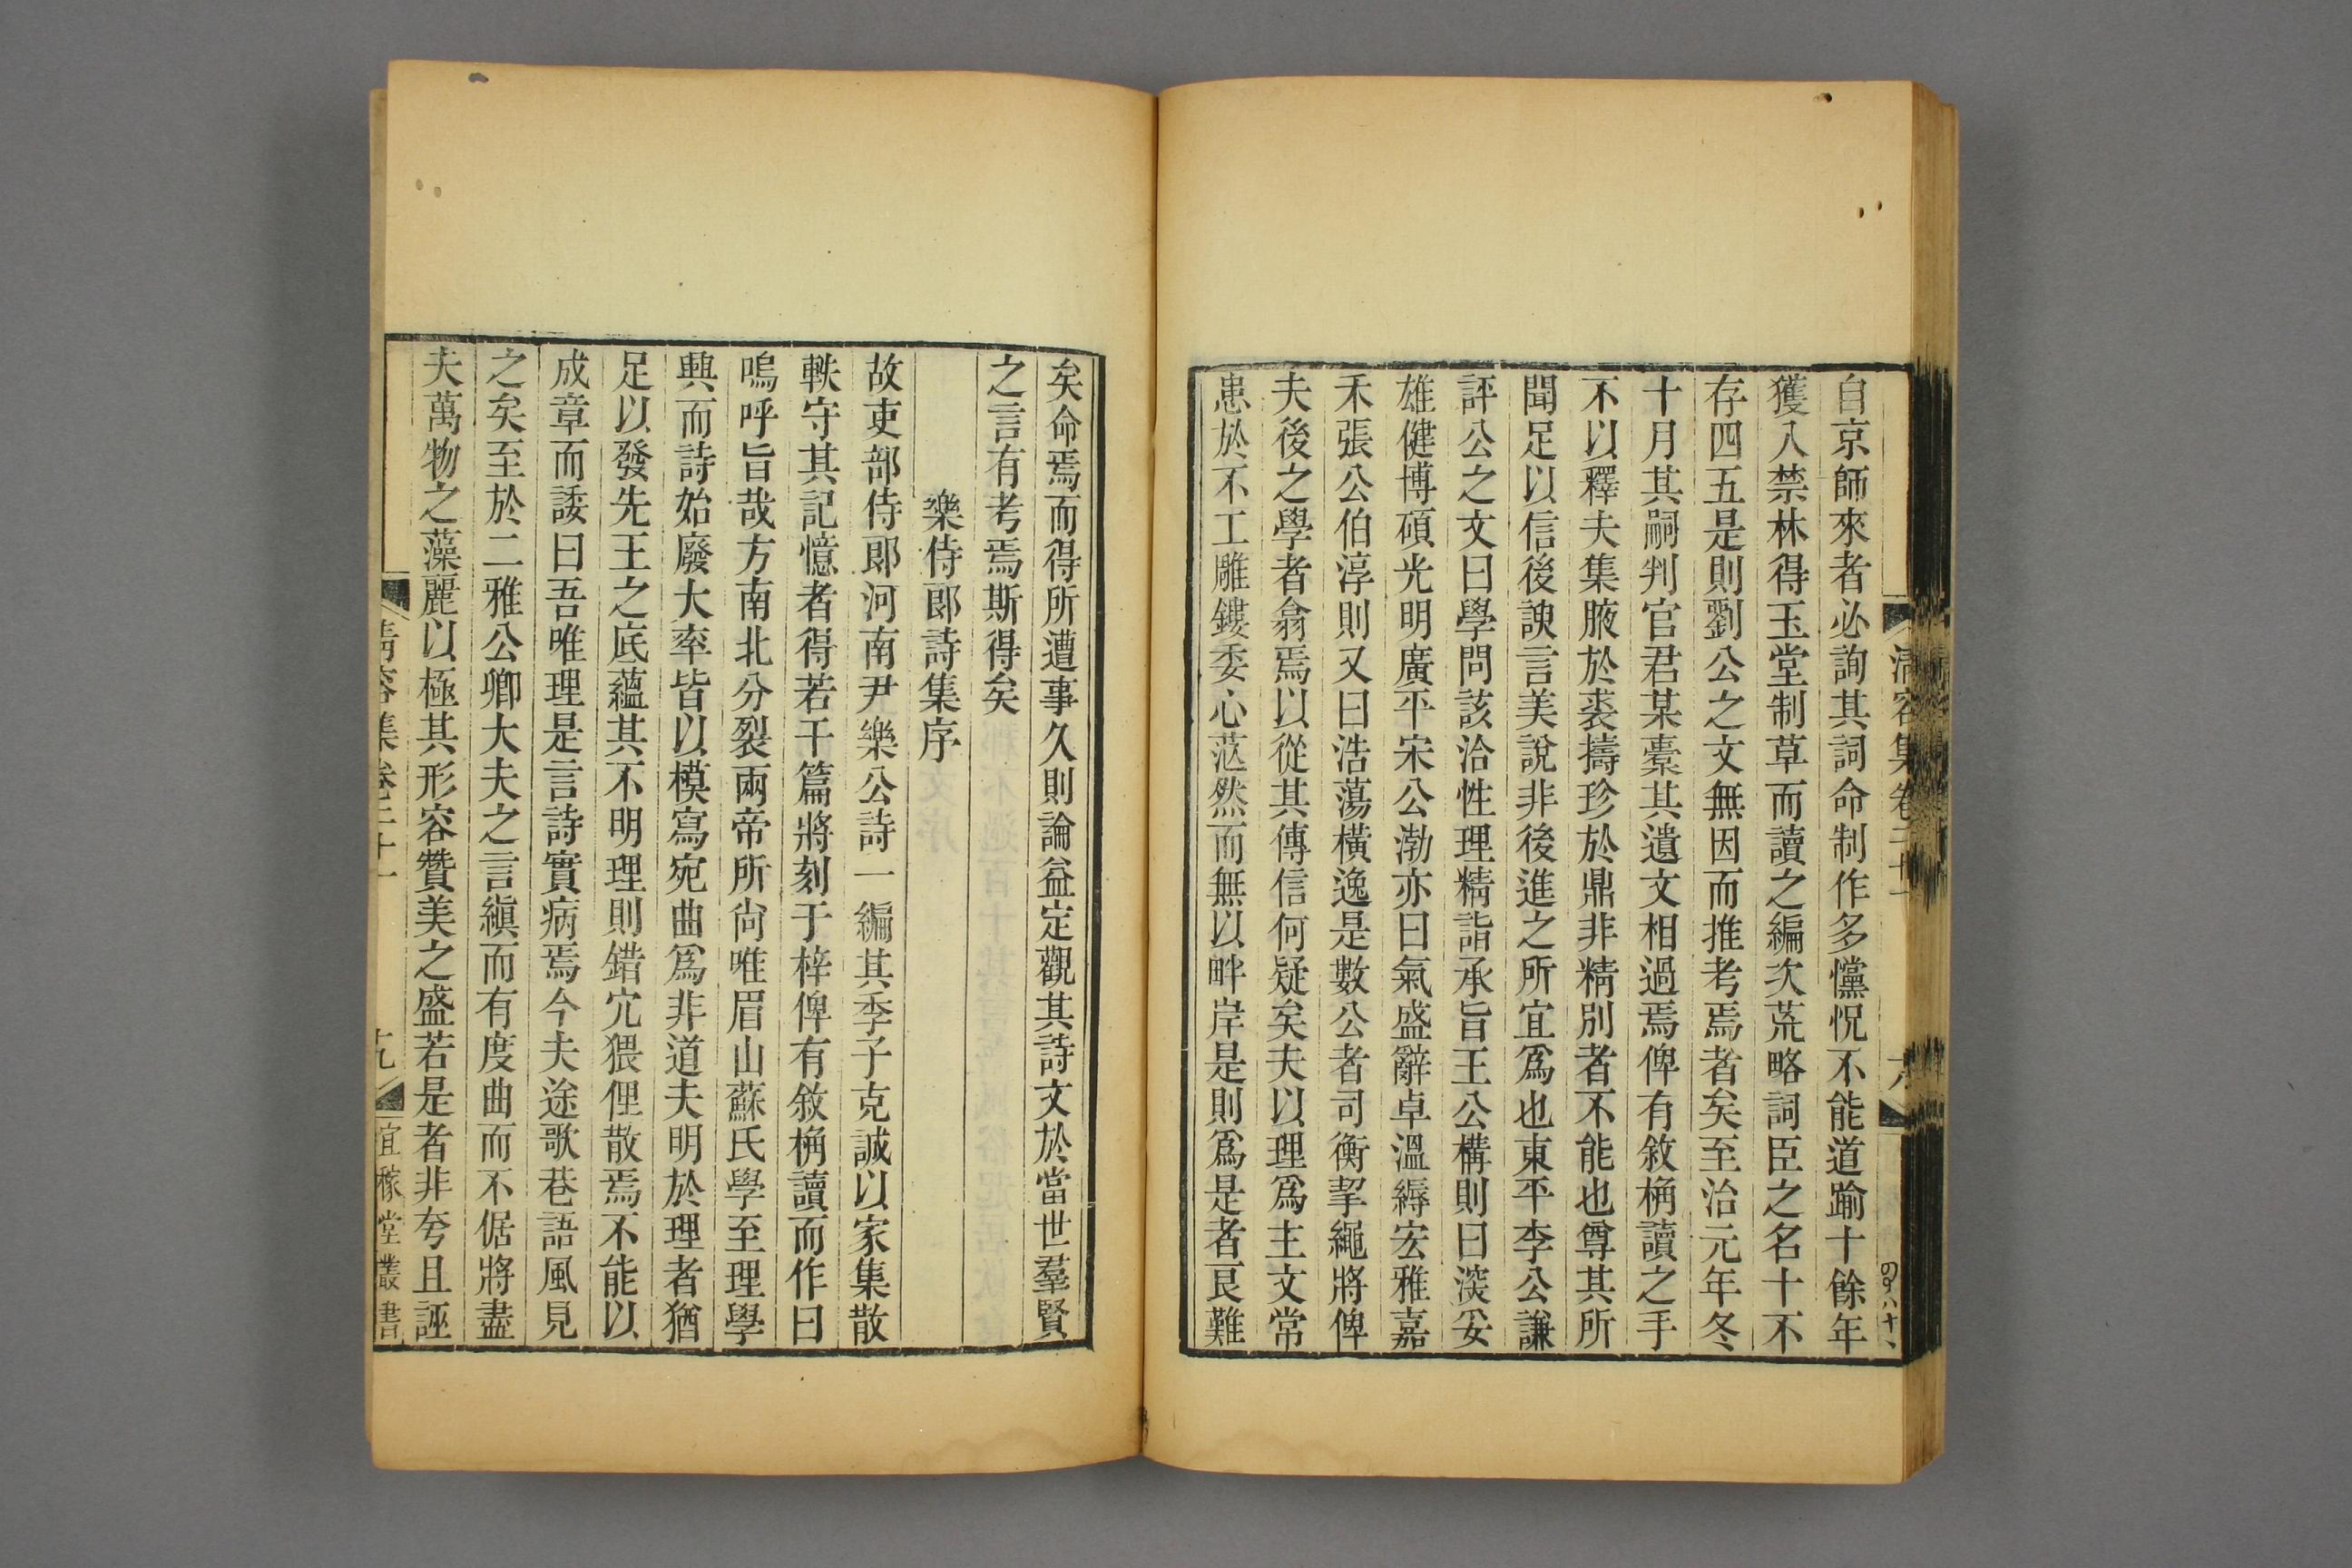 自京師來者必詢其詞命制作多儻怳不能道踰十餘年
獲入禁林得玉堂制草而讀之編次荒略詞臣之名十不
存四五是則劉公之文無因而推考焉者矣至治元年冬
十月其嗣判官君某橐其遺文相過焉俾有敘桷讀之手
不以釋夫集腋於裘擣珍於鼎非精別者不能也尊其所
聞足以信後諛言美說非後進之所宜爲也東平李公謙
評公之文曰學問該洽性理精詣承旨王公構則曰淡妥
雄健博碩光明廣平宋公渤亦曰氣盛辭卓溫縟宏雅嘉
禾張公伯淳則又曰浩蕩橫逸是數公者司衡挈繩將俾
夫後之學者翕焉以從其傳信何疑矣夫以理爲主文常
患於不工雕鏤委心茫然而無以畔岸是則爲是者艮難
清容集卷二十一
矣命焉而得所遭事久則論益定觀其詩文於當世羣賢
之言有考焉斯得矣
樂侍郎詩集序
故吏部侍郎河南尹樂公詩一編其季子克誠以家集散
軼守其記憶者得若干篇將刻于梓俾有敘桷讀而作曰
嗚呼旨哉方南北分裂兩帝所尙唯眉山蘇氏學至理學
興而詩始廢大率皆以模寫宛曲爲非道夫明於理者猶
足以發先王之底蘊其不明理則錯宂猥俚散焉不能以
成章而諉曰吾唯理是言詩實病焉今夫途歌巷語風見
之矣至於二雅公卿大夫之言縝而有度曲而不倨將盡
夫萬物之藻麗以極其形容贊美之盛若是者非夸且誣
清容集卷二十一
九
宜稼堂叢書